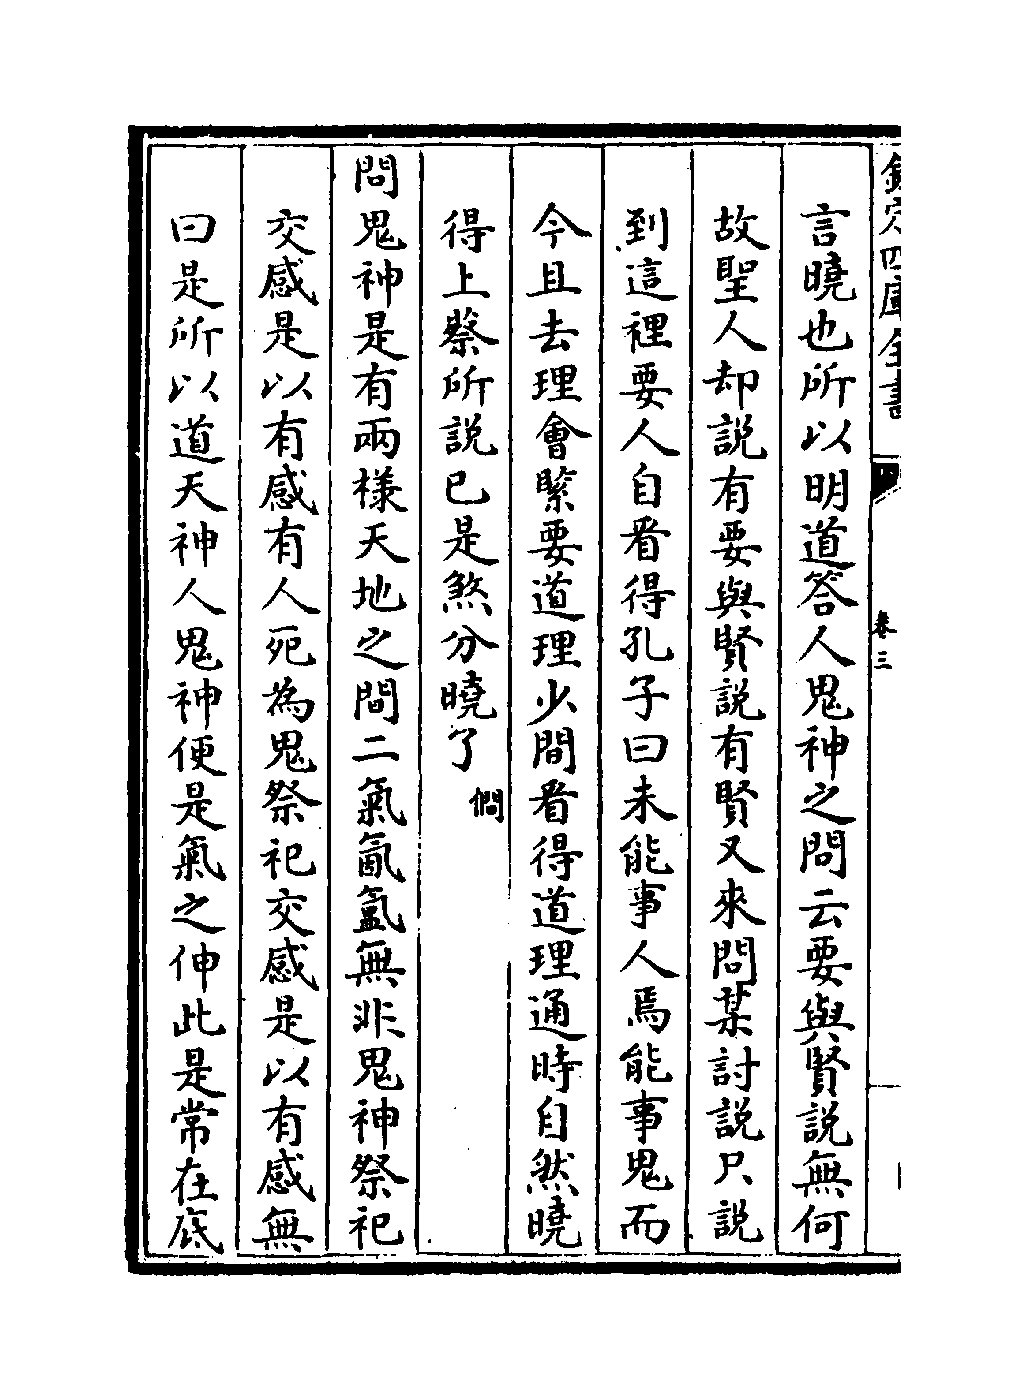 欽定四庫全書
卷三
言曉也所以明道答人鬼神之問云要與賢說無何
故聖人却說有要與賢說有賢又來問某討說只說
到這裡要人自看得孔子曰未能事人焉能事鬼而
今且去理會緊要道理少間看得道理通時自然曉
得上蔡所說已是煞分曉了
僩
問鬼神是有兩樣天地之間二氣氤氲無非鬼神祭祀
交感是以有感有人死為鬼祭祀交感是以有感無
曰是所以道天神人鬼神便是氣之伸此是常在底